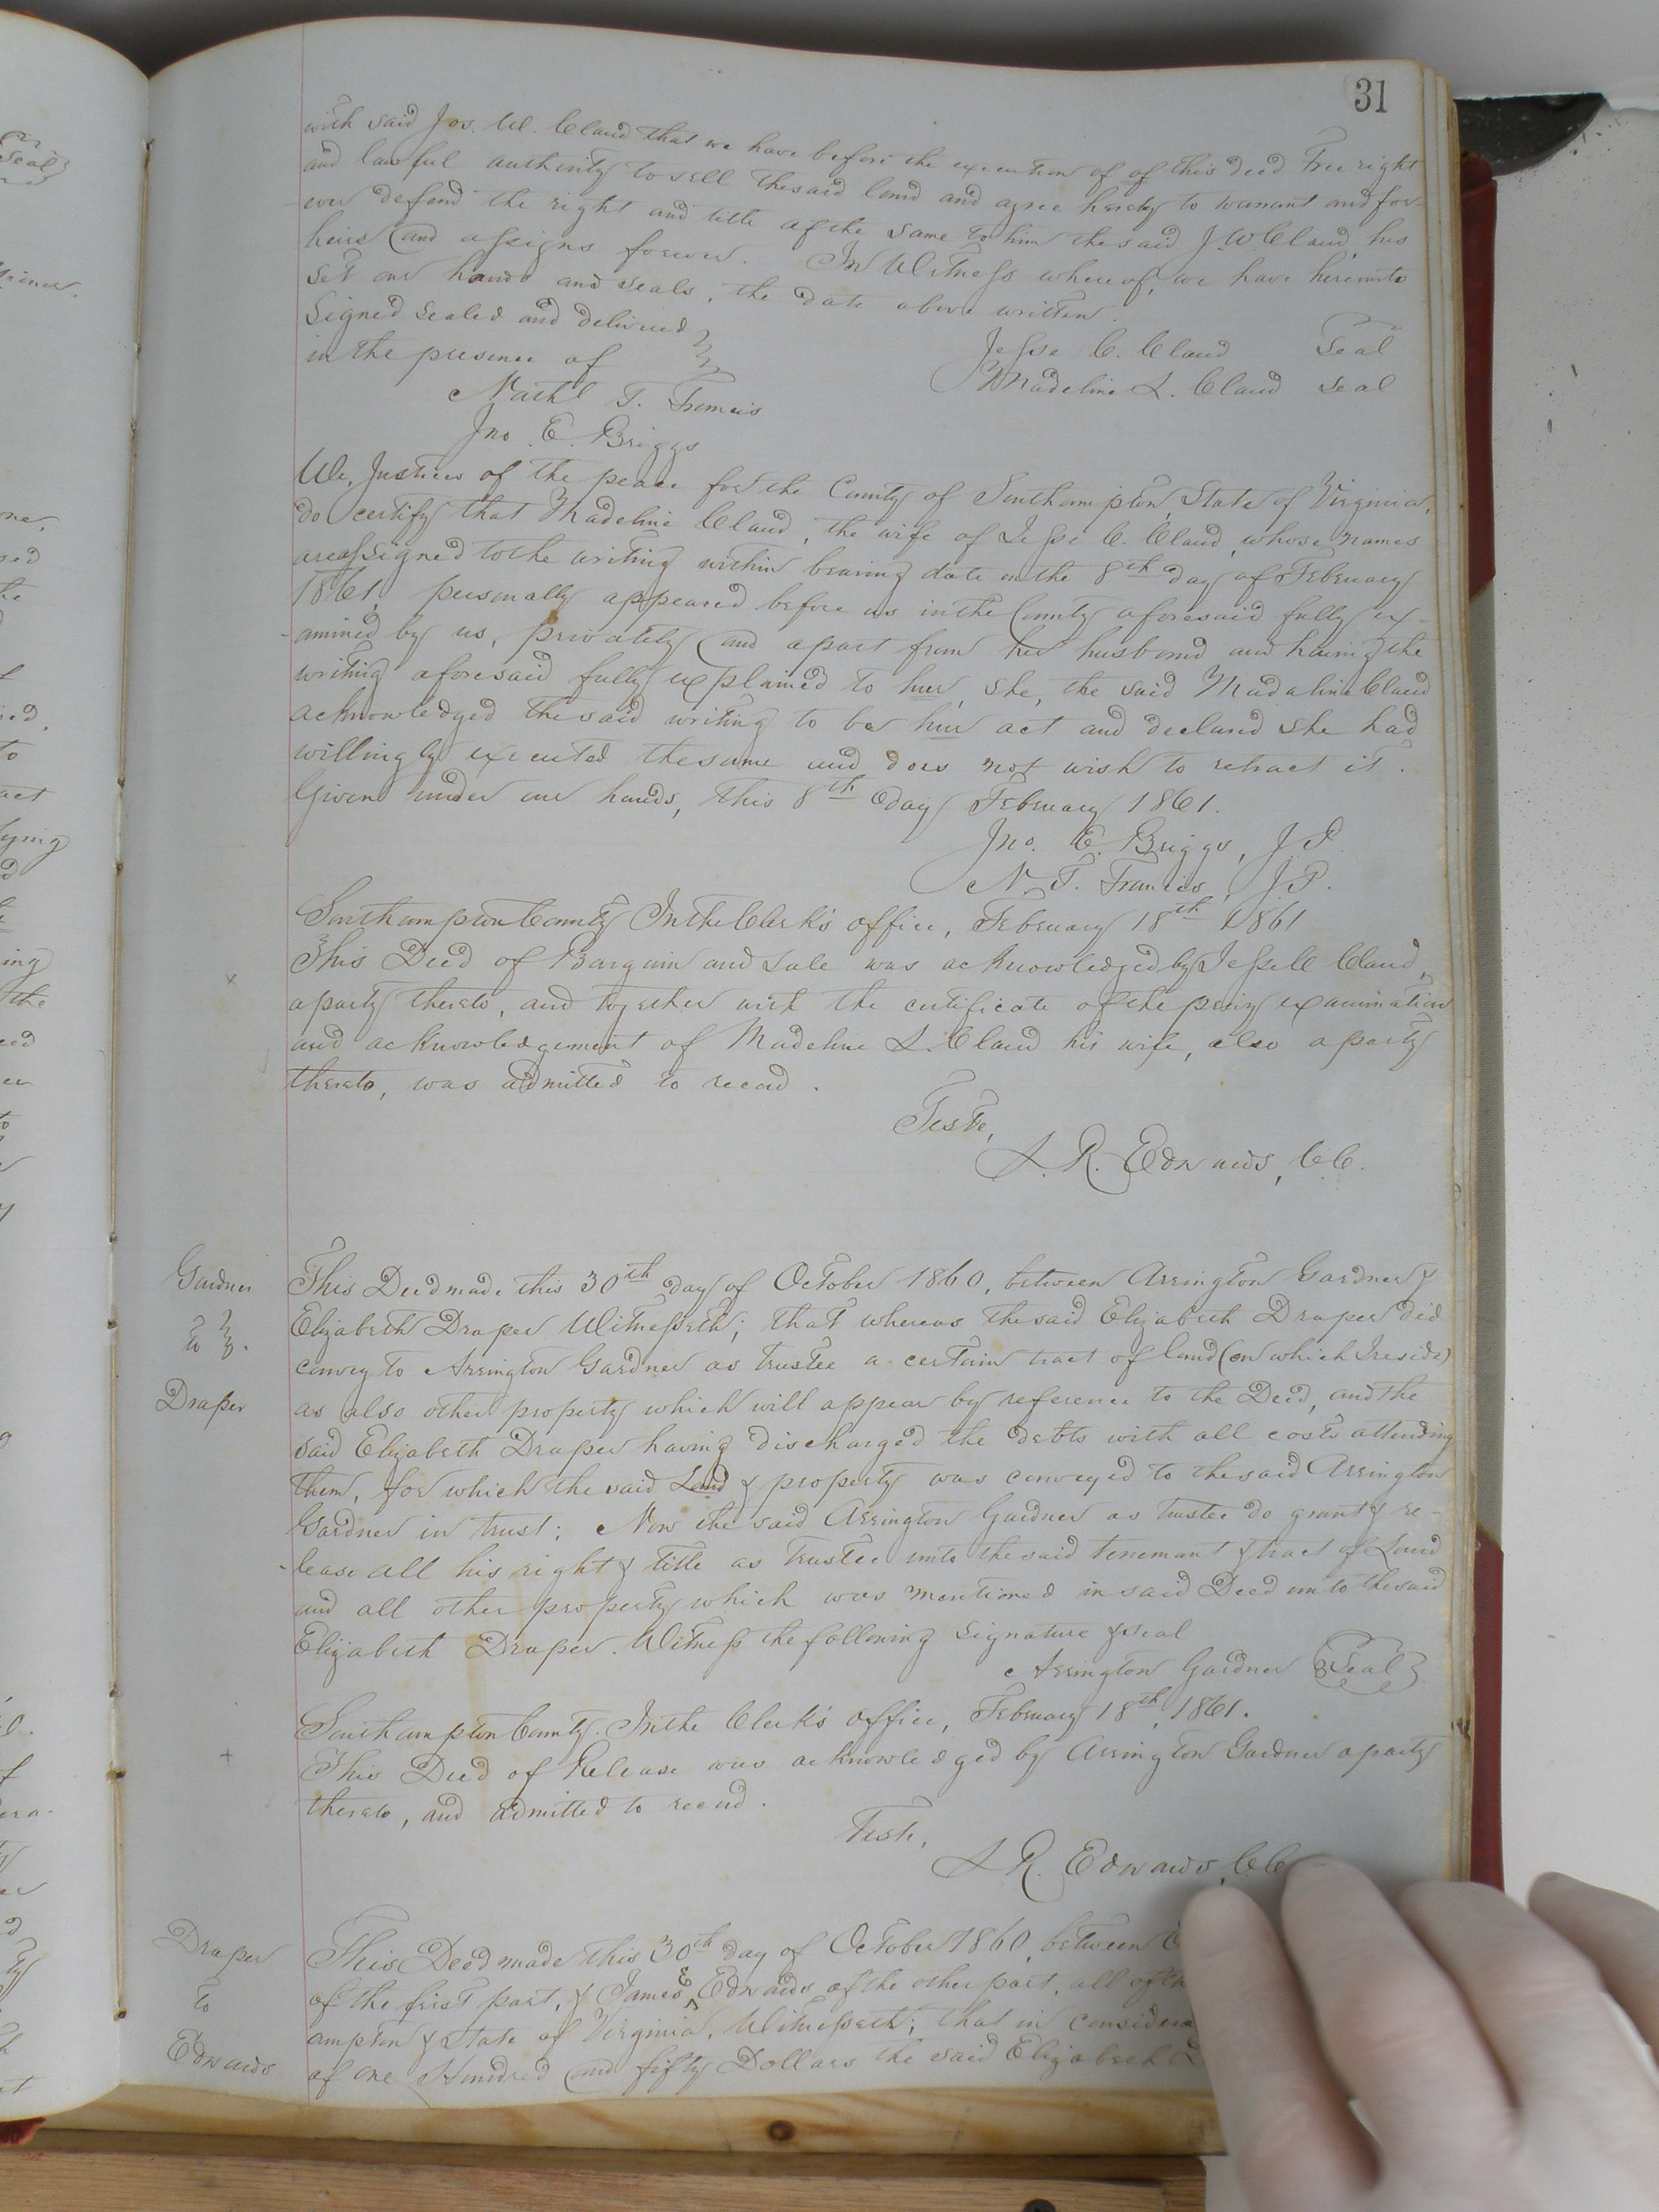 31
with said Jos. W. Claud that we have before the execution of of this deed Free right
and lawful authority to sell thesaid land and agree hereby to warrant and for-
ever defend the right and title of the same to him the said J W Claud, his
heirs and assigns forever. In Witness whereof, we have hereunto
set our hands and seals, the date above written.
Signed sealed and delivered
in the presence of
Jesse C. Claud Seal
Madeline L. Claud Seal
Nathl T. Francis
Jno. E. Briggs
We, Justices of the peace for the County of Southampton, State of Virginia,
do certify that Madeline Claud, the wife of Jesse C. Claud, whose names
are assigned to the writing within bearing date on the 8th day of February
1861, personally appeared before us in the County aforesaid fully ex-
amined by us, privately and apart from her husband and having the
writing aforesaid fully explained to her, she, the said Madaline Claud
acknowledged the said writing to be her act and declared she had
willingly executed the same and does not wish to retract it.
Given under our hands, this 8th day February 1861.
Jno. E. Briggs, J P.
N. T. Francis, J P.
Southampton County In the Clerk's office, February 18th 1861
This Deed of Bargain and Sale was acknowledged by Jesse C Claud,
x
a party thereto, and together with the certificate of the privy examination
and acknowledgement of Madeline L. Claud his wife, also a party
thereto, was admitted to record.
Teste,
L. R. Edwards, C.C.
Gardner
to
Draper
This Deed made this 30th day of October 1860, between Arrington Gardner &
Elizabeth Draper Witnesseth; that whereas the said Elizabeth Draper did
convey to Arrington Gardner as trustee a certain tract of land (on which I reside)
as also other property which will appear by reference to the Deed, and the
said Elizabeth Draper having discharged the debts with all costs attending
them, for which the said Land & property was conveyed to the said Arrington
Gardner in trust; Now the said Arrington Gardner as trustee do grant & re-
-lease all his right & title as trustee unto the said tenemant & tract of Land
and all other property which was mentioned in said Deed unto the said
Elizabeth Draper. Witness the following signature & seal
Arrington Gardner Seal
Southampton County. In the Clerk's office, February 18th, 1861.
+
This Deed of Release was acknowledged by Arrington Gardner a party
thereto, and admitted to record.
Teste,
L R. Edwards, C.C.
Draper
to
Edwards
This Deed made this 30th day of October 1860, between
of the first part, & James E Edwards of the other part, all of
ampton & State of Virginia, Witnesseth; that in considera
of one Hundred and fifty Dollars the said Elizabeth